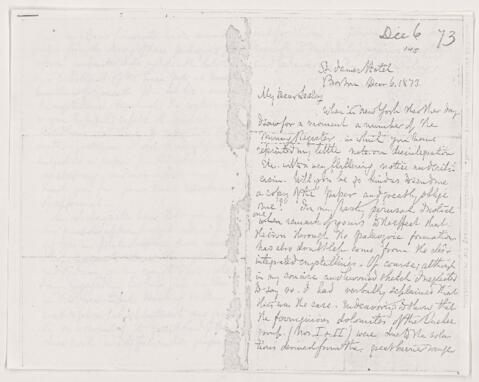 Dec 6 73
St James Hotel
Boston Dec 6. 1873.
My Dear Lesley
When in New York the other day
I saw for a moment a number of the
Mining Register, in which you have
reprinted my little note on disintegration
etc. with a very flattering notice and criti-
cism. Will you be so kind as to send me
a copy of the paper and greatly oblige
me? In my hasty perusal I noticed
one remark of yours to the effect that
the iron through the palaeozoic formations
has also doubtless come from the dis-
integrated crystallines. Of course, although
in my concise and hurried sketch I neglected
to say so. I had verbally explained that
that was the case. Endeavoring to show that
the ferruginous dolomites of the Quebec
group. (Nos. I & II) were due to the solu-
tions derived from the great barrier range